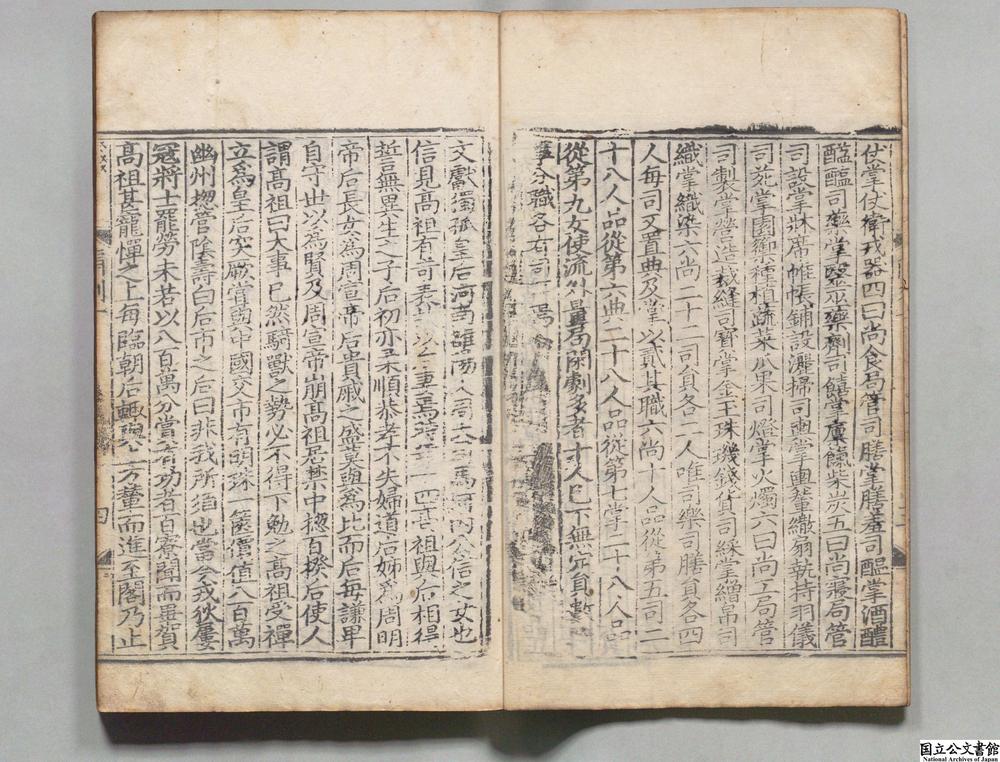 仗掌仗衛戎器四曰尚食局管司膳掌膳羞司醞掌酒醴
醢醯司藥掌毉巫藥劑司饎掌廩餼柴炭五曰尚寢局管
司設掌牀席帷帳鋪設灑掃司輿掌輿輦繖扇執持羽儀
司苑掌園籞種植蔬菜瓜果司燈掌火燭六曰尚工局管
司製掌營造裁縫司寳掌金玉珠璣錢貨司綵掌繒帛司
織掌織染六尚二十二司貟各二人唯司樂司膳貟各四
人每司又置典及掌以貳其職六尚十人品從第五司二
十八人品從第六典二十八人品從第七掌二十八人品
從第九女使流外量局閑劇多者十人已下無定貟數
事分職各有司焉
文獻獨孤皇后河南雒陽人周大司馬河内公信之女也
信見髙祖有竒表故以后妻焉時年十四髙祖與后相得
誓無異生之子后初亦柔順恭孝不失婦道后姊爲周明
帝后長女爲周宣帝后貴戚之盛莫與爲比而后每謙卑
自守世以爲賢及周宣帝崩髙祖居禁中揔百揆后使人
謂髙祖曰大事已然騎獸之勢必不得下勉之髙祖受禪
立爲皇后突厥嘗與中國交市有明珠一篋價值八百萬
幽州揔管陰壽白后市之后曰非我所須也當今戎狄屢
寇將士罷勞未若以八百萬分賞有功者百寮聞而畢賀
髙祖甚寵憚之上每臨朝后輒與上方輦而進至閤乃止
四
国立公文書館
National Archives of Japan